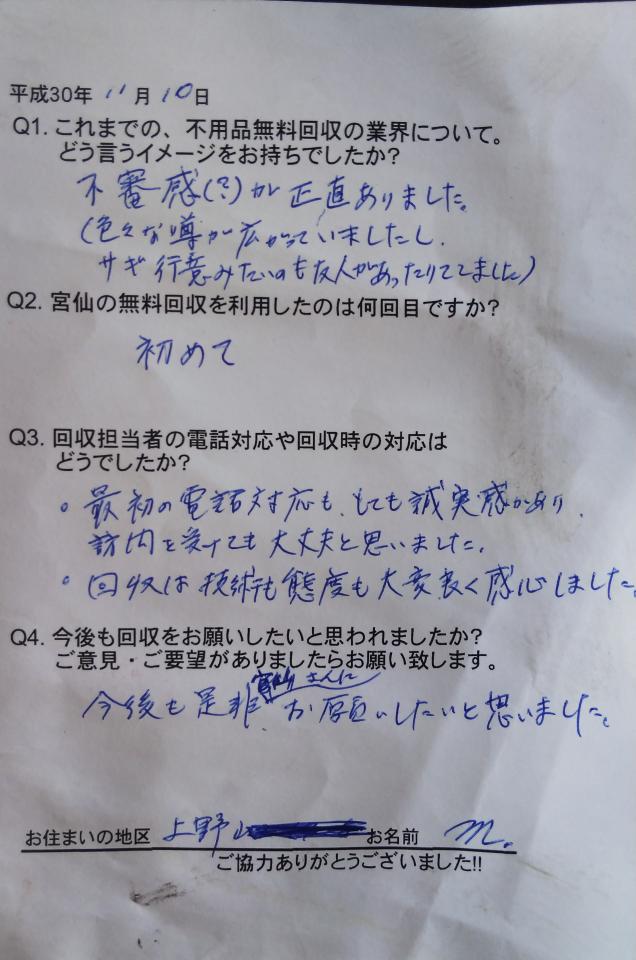 平成30年 11月 10日
Q1. これまでの、不用品無料回収の業界について。
どう言うイメージをお持ちでしたか?
不審感(?)が正直ありました。
(色々な噂が広がっていましたし、
サギ行意みたいのも友人があったりしてました)
Q2. 宮仙の無料回収を利用したのは何回目ですか?
初めて
Q3. 回収担当者の電話対応や回収時の対応は
どうでしたか?
• 最初の電話対応も、とても誠実感があり、
訪内を受けても大丈夫と思いました。
• 回収は技術も態度も大変良く感心しました。
Q4. 今後も回収をお願いしたいと思われましたか?
ご意見・ご要望がありましたらお願い致します。
宮仙さんに
今後も是非、お願いしたいと思いました。
お住まいの地区 上野 お名前 m.
ご協力ありがとうございました!!